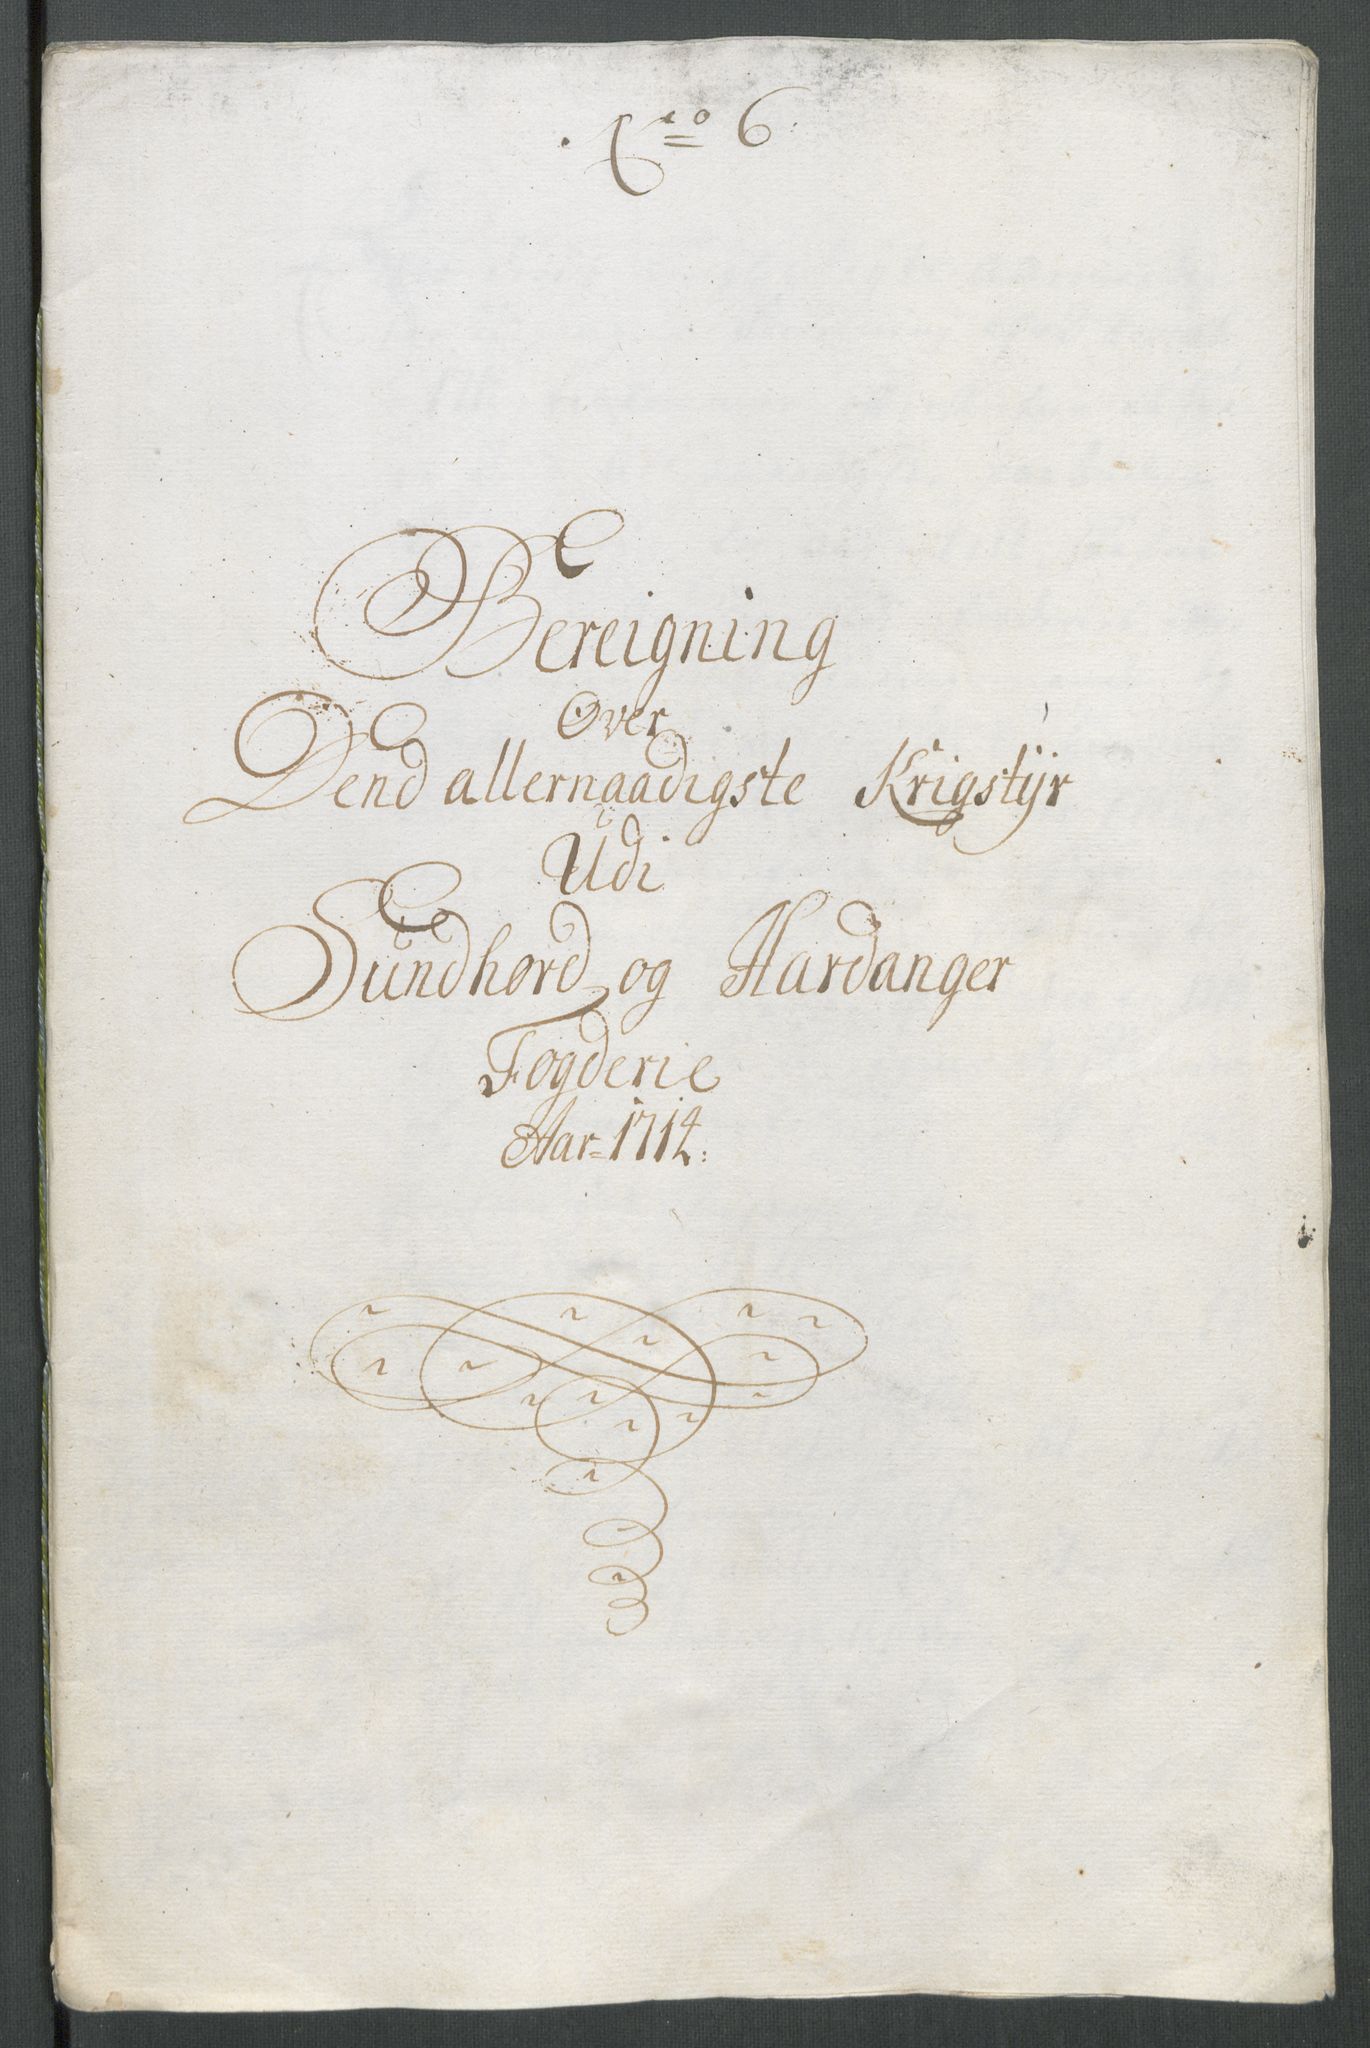 No 6.
Bereigning
Over
Dend allernaadigste Krigstÿr
Udi
Sundhord og Hardanger
Fogderie
Aar= 1714: